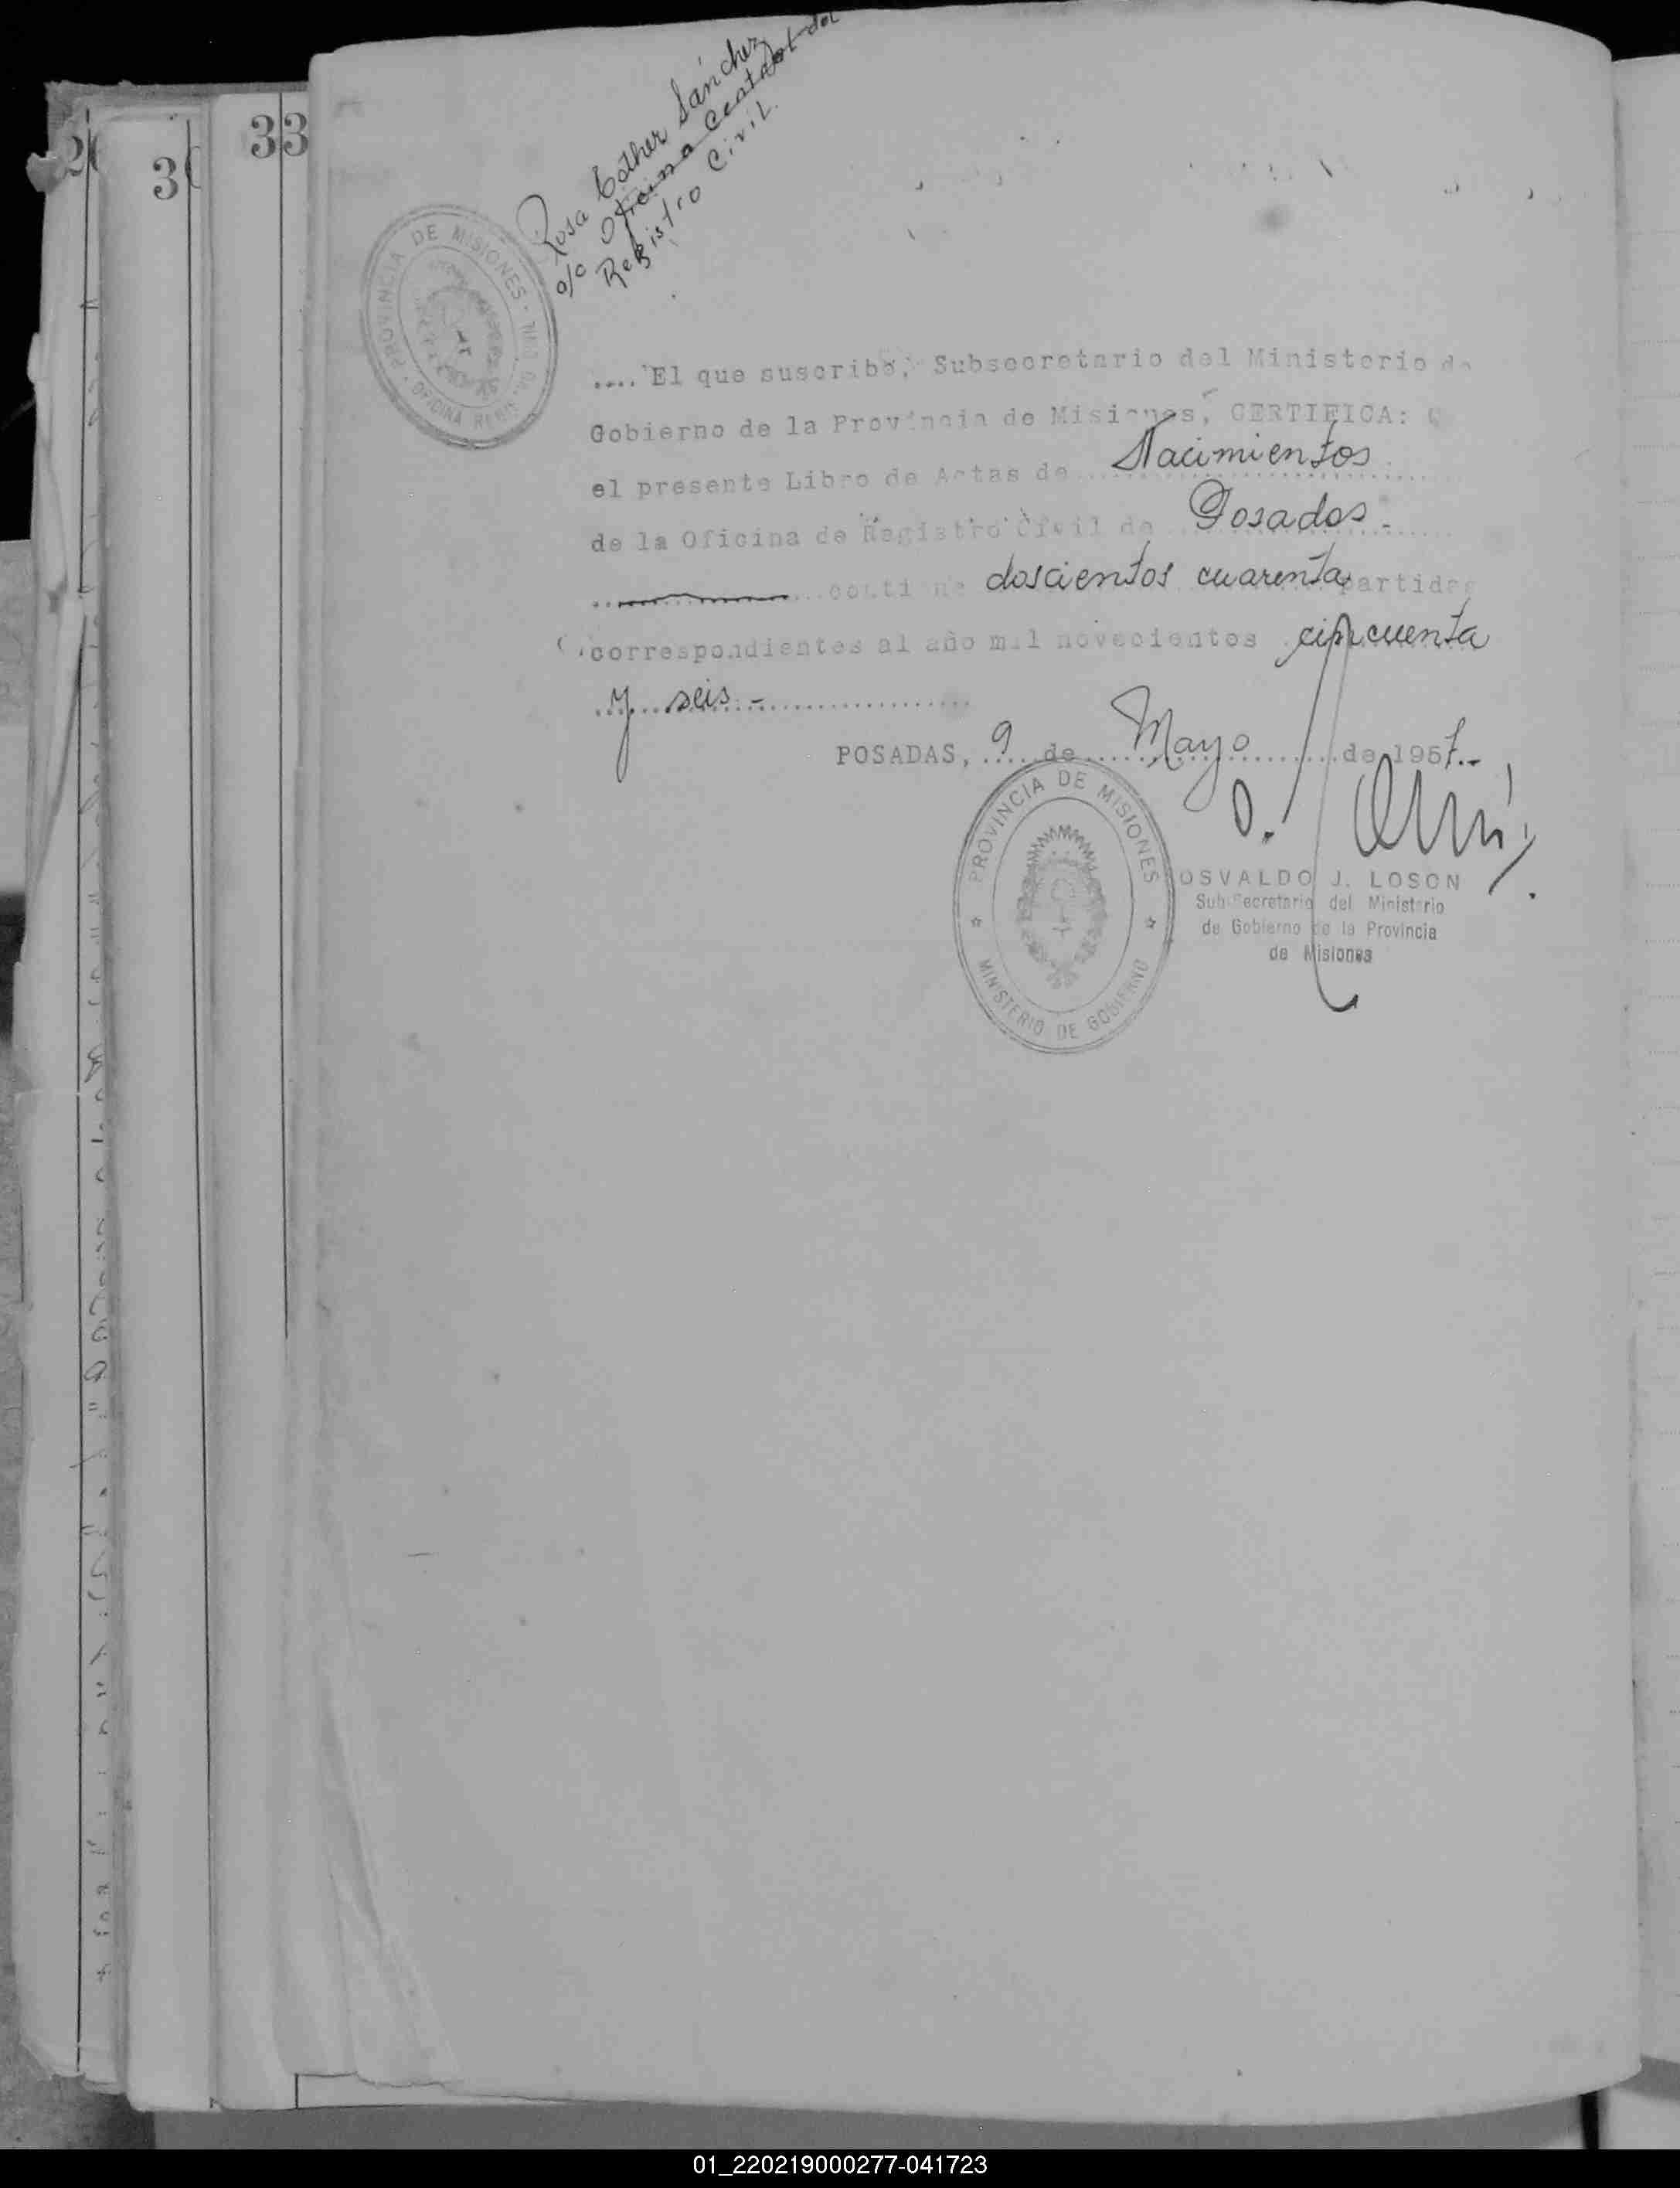 33
3
Rosa Esther Sánchez
a/c Oficina Central del
Registro Civil.
PROVINCIA DE MISIONES
OFICINA
....El que suscribe, Subsecretario del Ministerio de
Gobierno de la Provincia de Misiones, CERTIFICA:
el presente Libro de Actas de Nacimientos
de la Oficina de Registro Civil de Posadas.-
contiene doscientos cuarenta partidas
correspondientes al año mil novecientos cincuenta
y seis.-
POSADAS, 9 de Mayo de 1957.-
PROVINCIA DE MISIONES
MINISTERIO DE GOBIERNO
OSVALDO J. LOSON
Sub-Secretario del Ministerio
de Gobierno de la Provincia
de Misiones
01_220219000277-041723